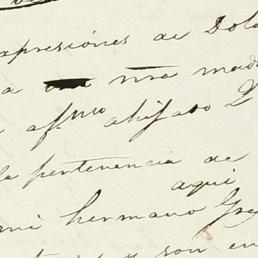 expresiones de Dolo
a nra madr
afmo ahijado D
la pertenencia de
aqui
mi hermano Gre
y son en